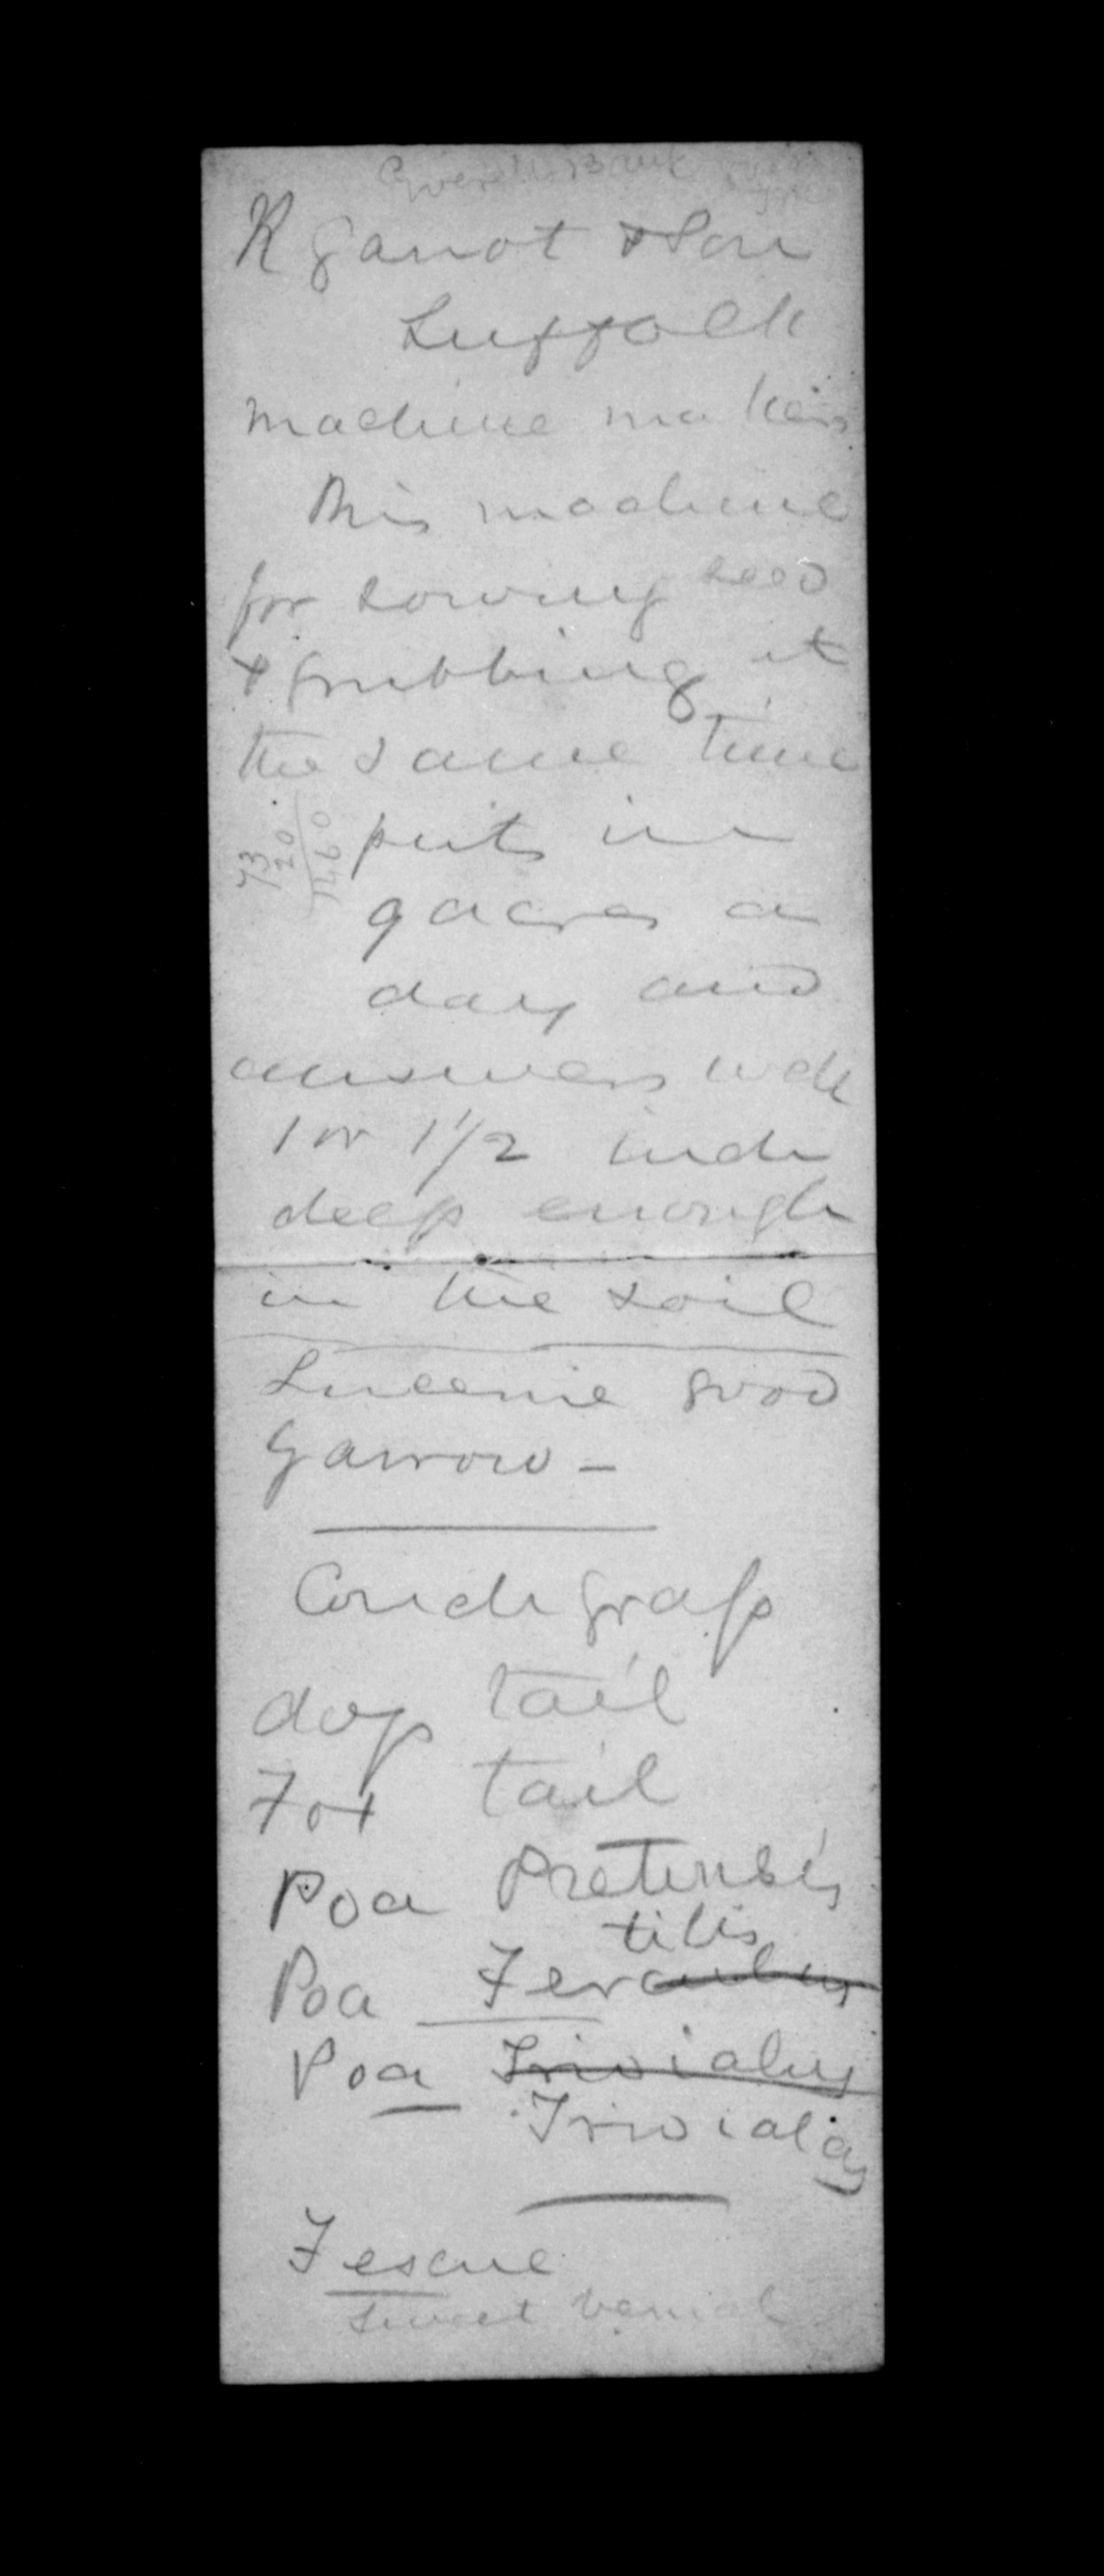 R Garrot & Son
Suffolk
machine makers
This machine
for sowing seed
& grubbing it
the same time
puts in
9 acres a
day and
answers well
1 or 1 1/2 inch
deep enough
in the soil
Lucerne good
Yarrow -
Couch Grass
dog tail
Fox tail
Poa Pretensis
tilis
Poa Fer
Poa Trivialus
Trivialas
Fescue
Sweet Vernal
73
20
1460